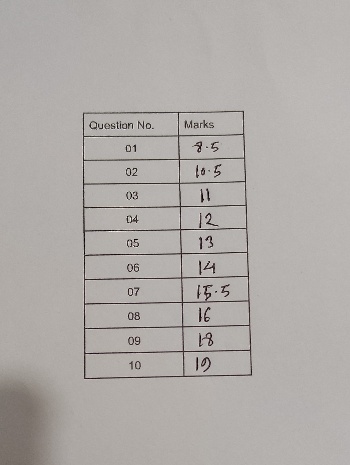 Question No. Marks
01 8.5
02 10.5
03 11
04 12
05 13
06 14
07 15.5
08 16
09 18
10 19